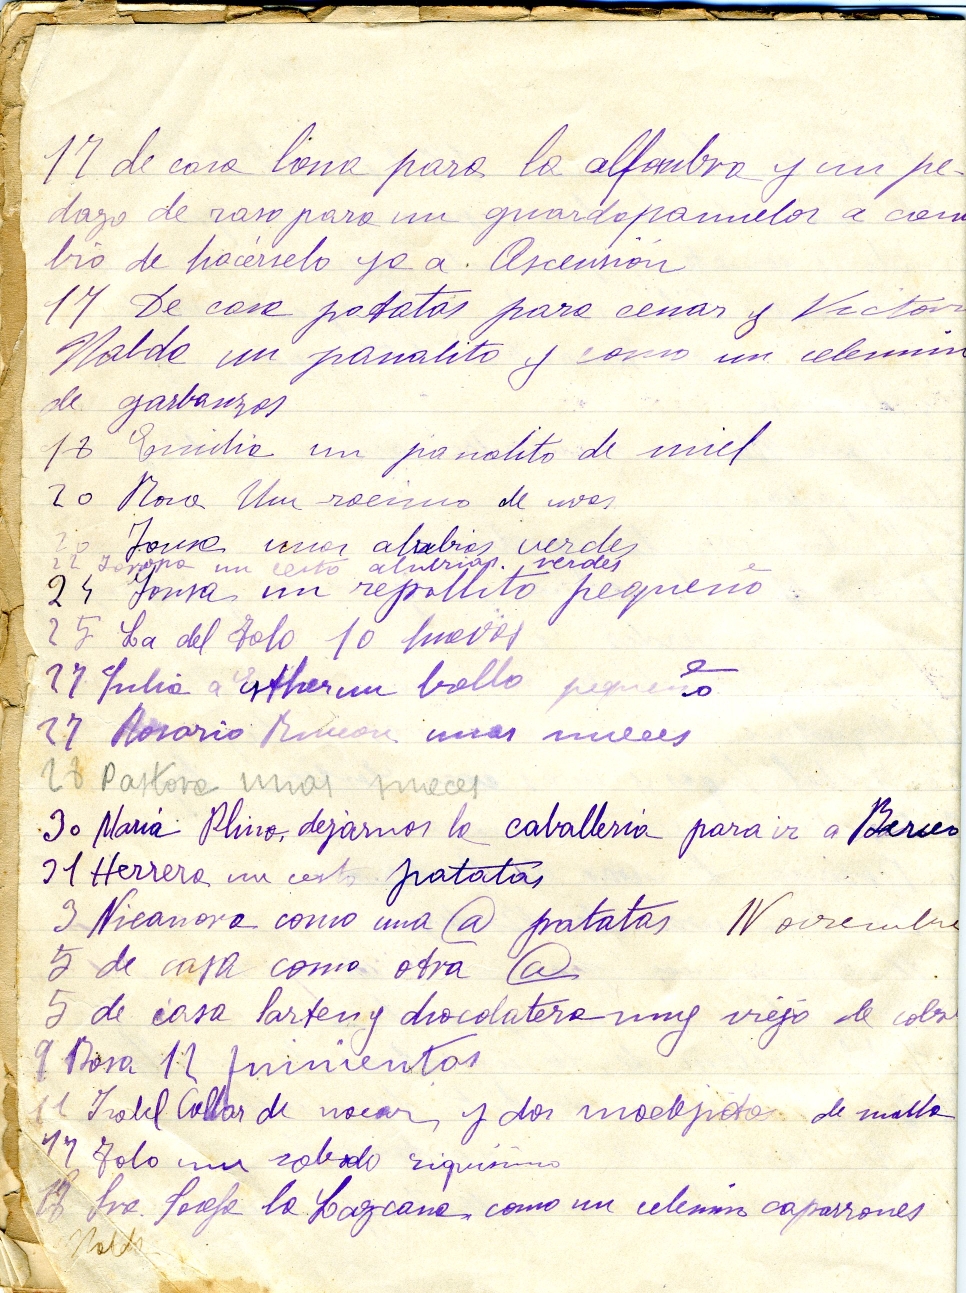 17 de casa lona para la alfombra y un pe-
dazo de raso para un guardapañuelos a cam
bio de hacérselo yo a Ascensión
17 De casa patatas para cenar y Victor
Nalda un panalito y como un celemin
de garbanzos
18 Emilia un panalito de miel
20 Rosa Un racimo de uvas
20 unas alubias verdes
22 un cesto alubias verdes
24 un repollito pequeño
25 La del Zolo 10 huevos
27 Julia a Esther un bollo pequeño
27 Rosario unas nueces
28 Pastora unas nueces
30 Maria Plino, dejarnos la caballeria para ir a Berceo
31 Herrera un cesto patatas
3 Nicanora como una @ patatas Noviembre
5 de casa como otra @
5 de casa larten y chocolatera muy viejo de cobr
9 Rosa 12 pimientos
11 Isabel Collar de nacar y dos de malla
17 Zolo un riquisimo
18 Sra. la Lazcana como un celemin caparrones